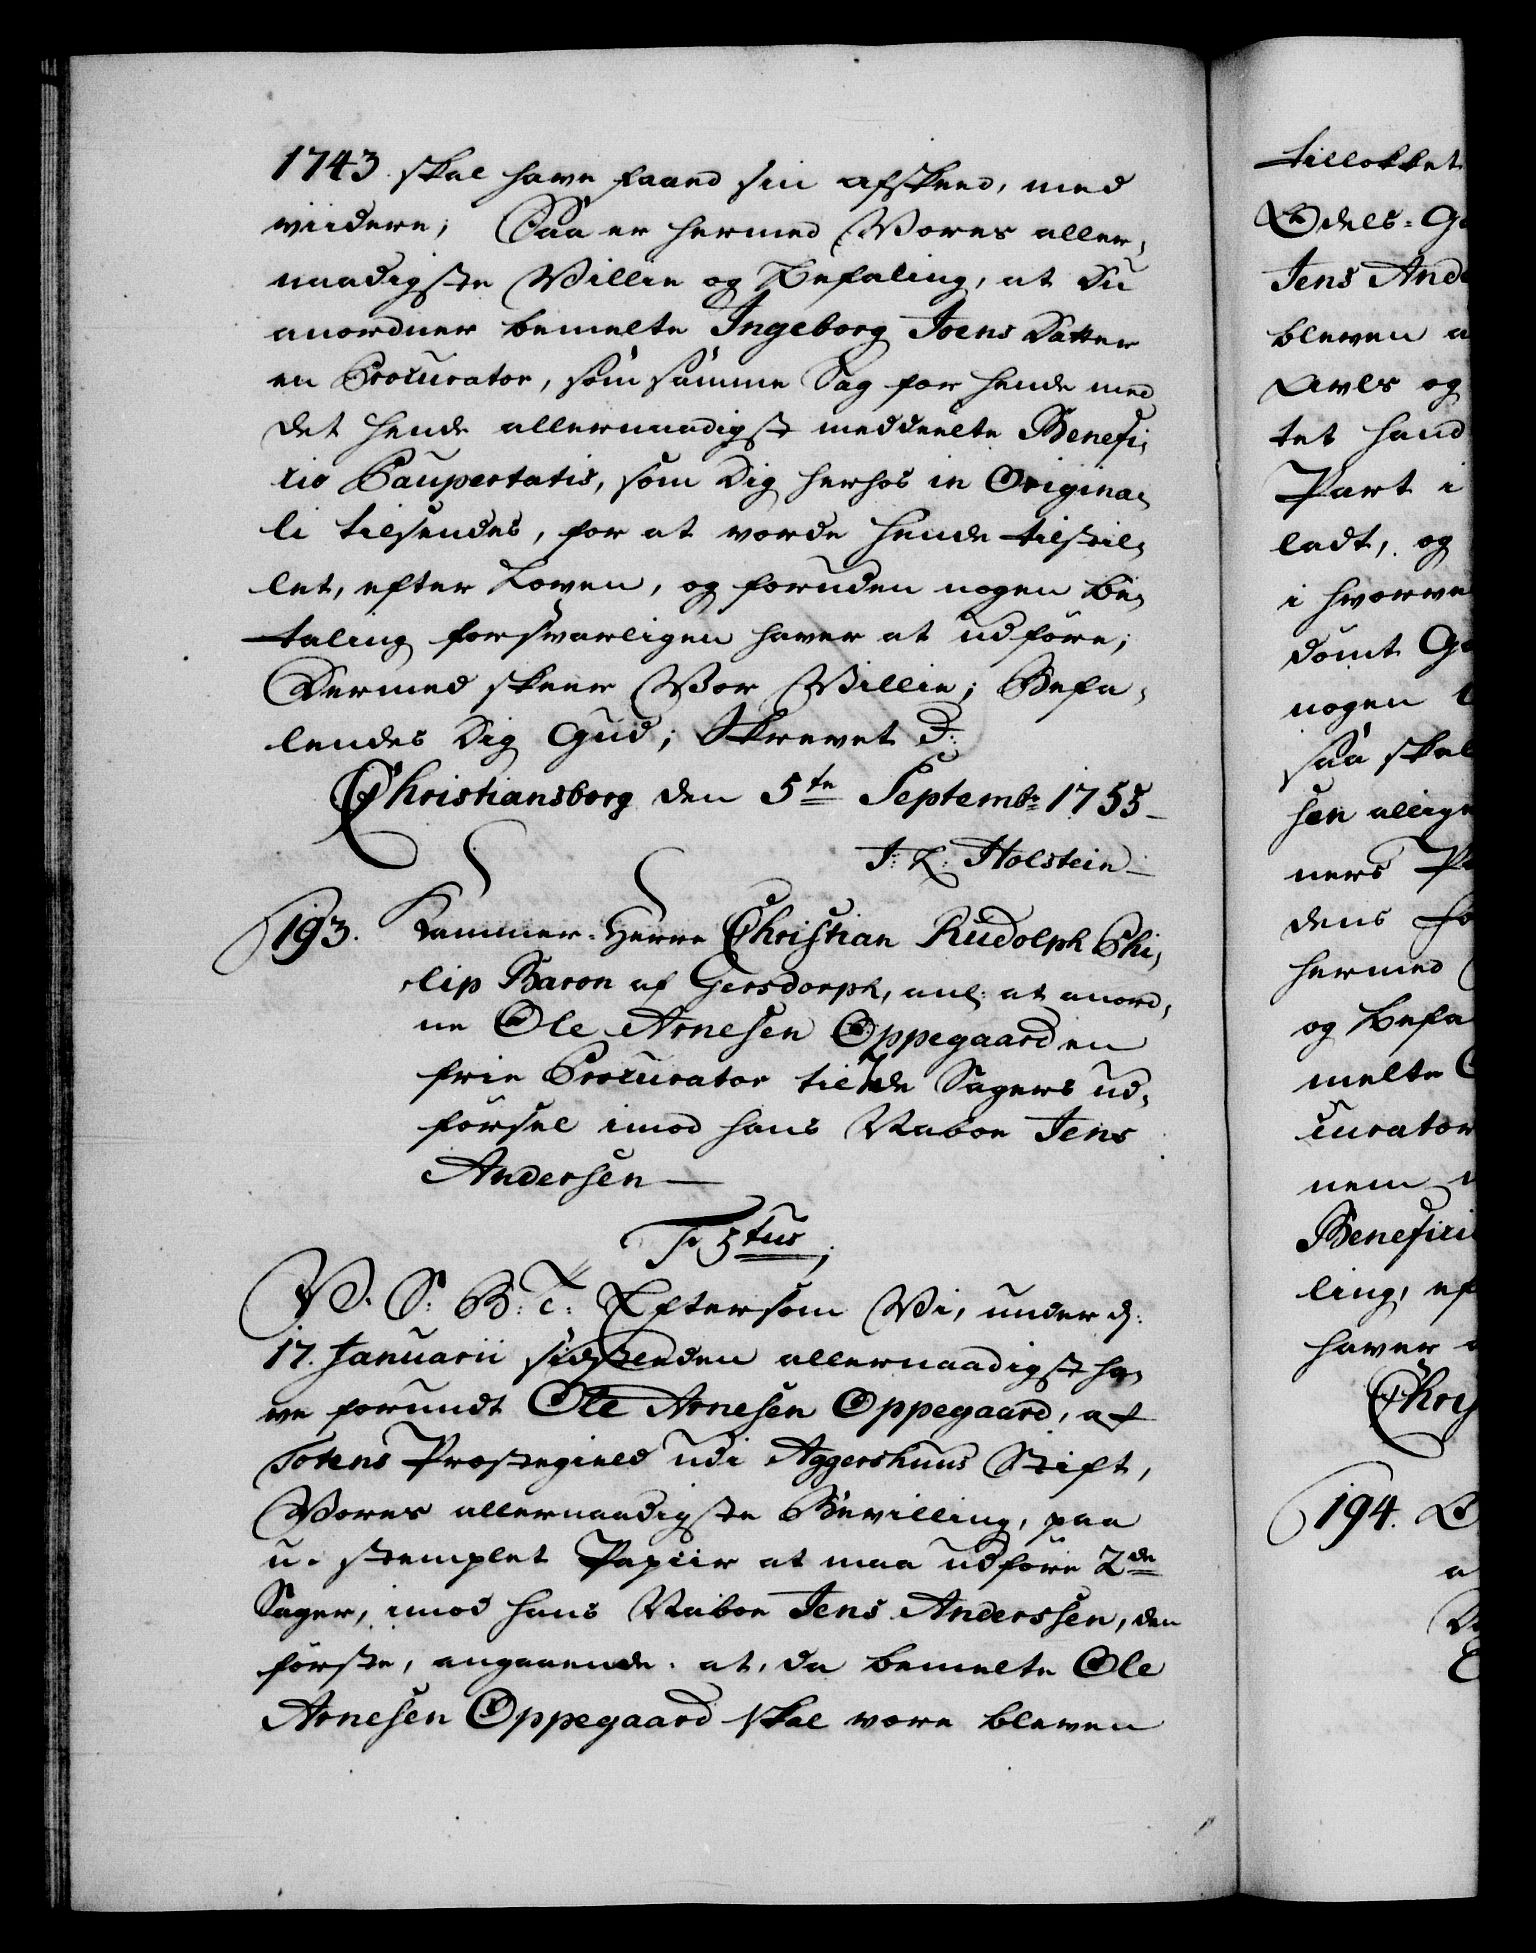 1743. skal have faaed sin afskeed, med
viidere; Saa er hermed Vores aller,
naadigste Villie og Befaling, at Du
anordner bemelte Ingeborg Joens Datter
en Procurator, som samme Sag for hende med
det hende allernaadigst meddeelte Benefi,
cio Paupertatis, som Dig herhos in Origina,
li tilsendes, for at vorde hende tilstil,
let, efter Loven, og foruden nogen Be,
taling forsvarligen haver at udføre;
Dermed skeer Vor Villie; Befa,
lendes Dig Gud; Skrevet p:
Christiansborg den 5te Septembr: 1755
J: L: Holstein
193. Kammer-Herre Christian Rudolph Phi,
lip Baron af Gersdorph, anl: at anord,
ne Ole Arnesen Oppegaard en
frie Procurator til 2de Sagers ud,
førsel imod hans Naboe Jens
Andersen
F 5tus;
V. S: B: T: Eftersom Vi, under d:
17. Januarii sidstleden allernaadigst ha,
ve forundt Ole Arnesen Oppegaard, af
Totens Præstegield udi Aggershuus Stift,
Vores allernaadigste Bevilling, paa
u-stemplet Papiir at maa udføre 2de
Sager, imod hans Naboe Jens Anderssen, den
første, angaaende, at, da bemelte Ole
Arnesen Oppegaard skal være bleven
tillokket
Odels-
Jens
bleven
Avls og
tet
Part i
ladt, og
i
dømt
nogen
saa skal
sen
ners
dens
hermed
og
melte
curator
nem
ling,
haver
194.